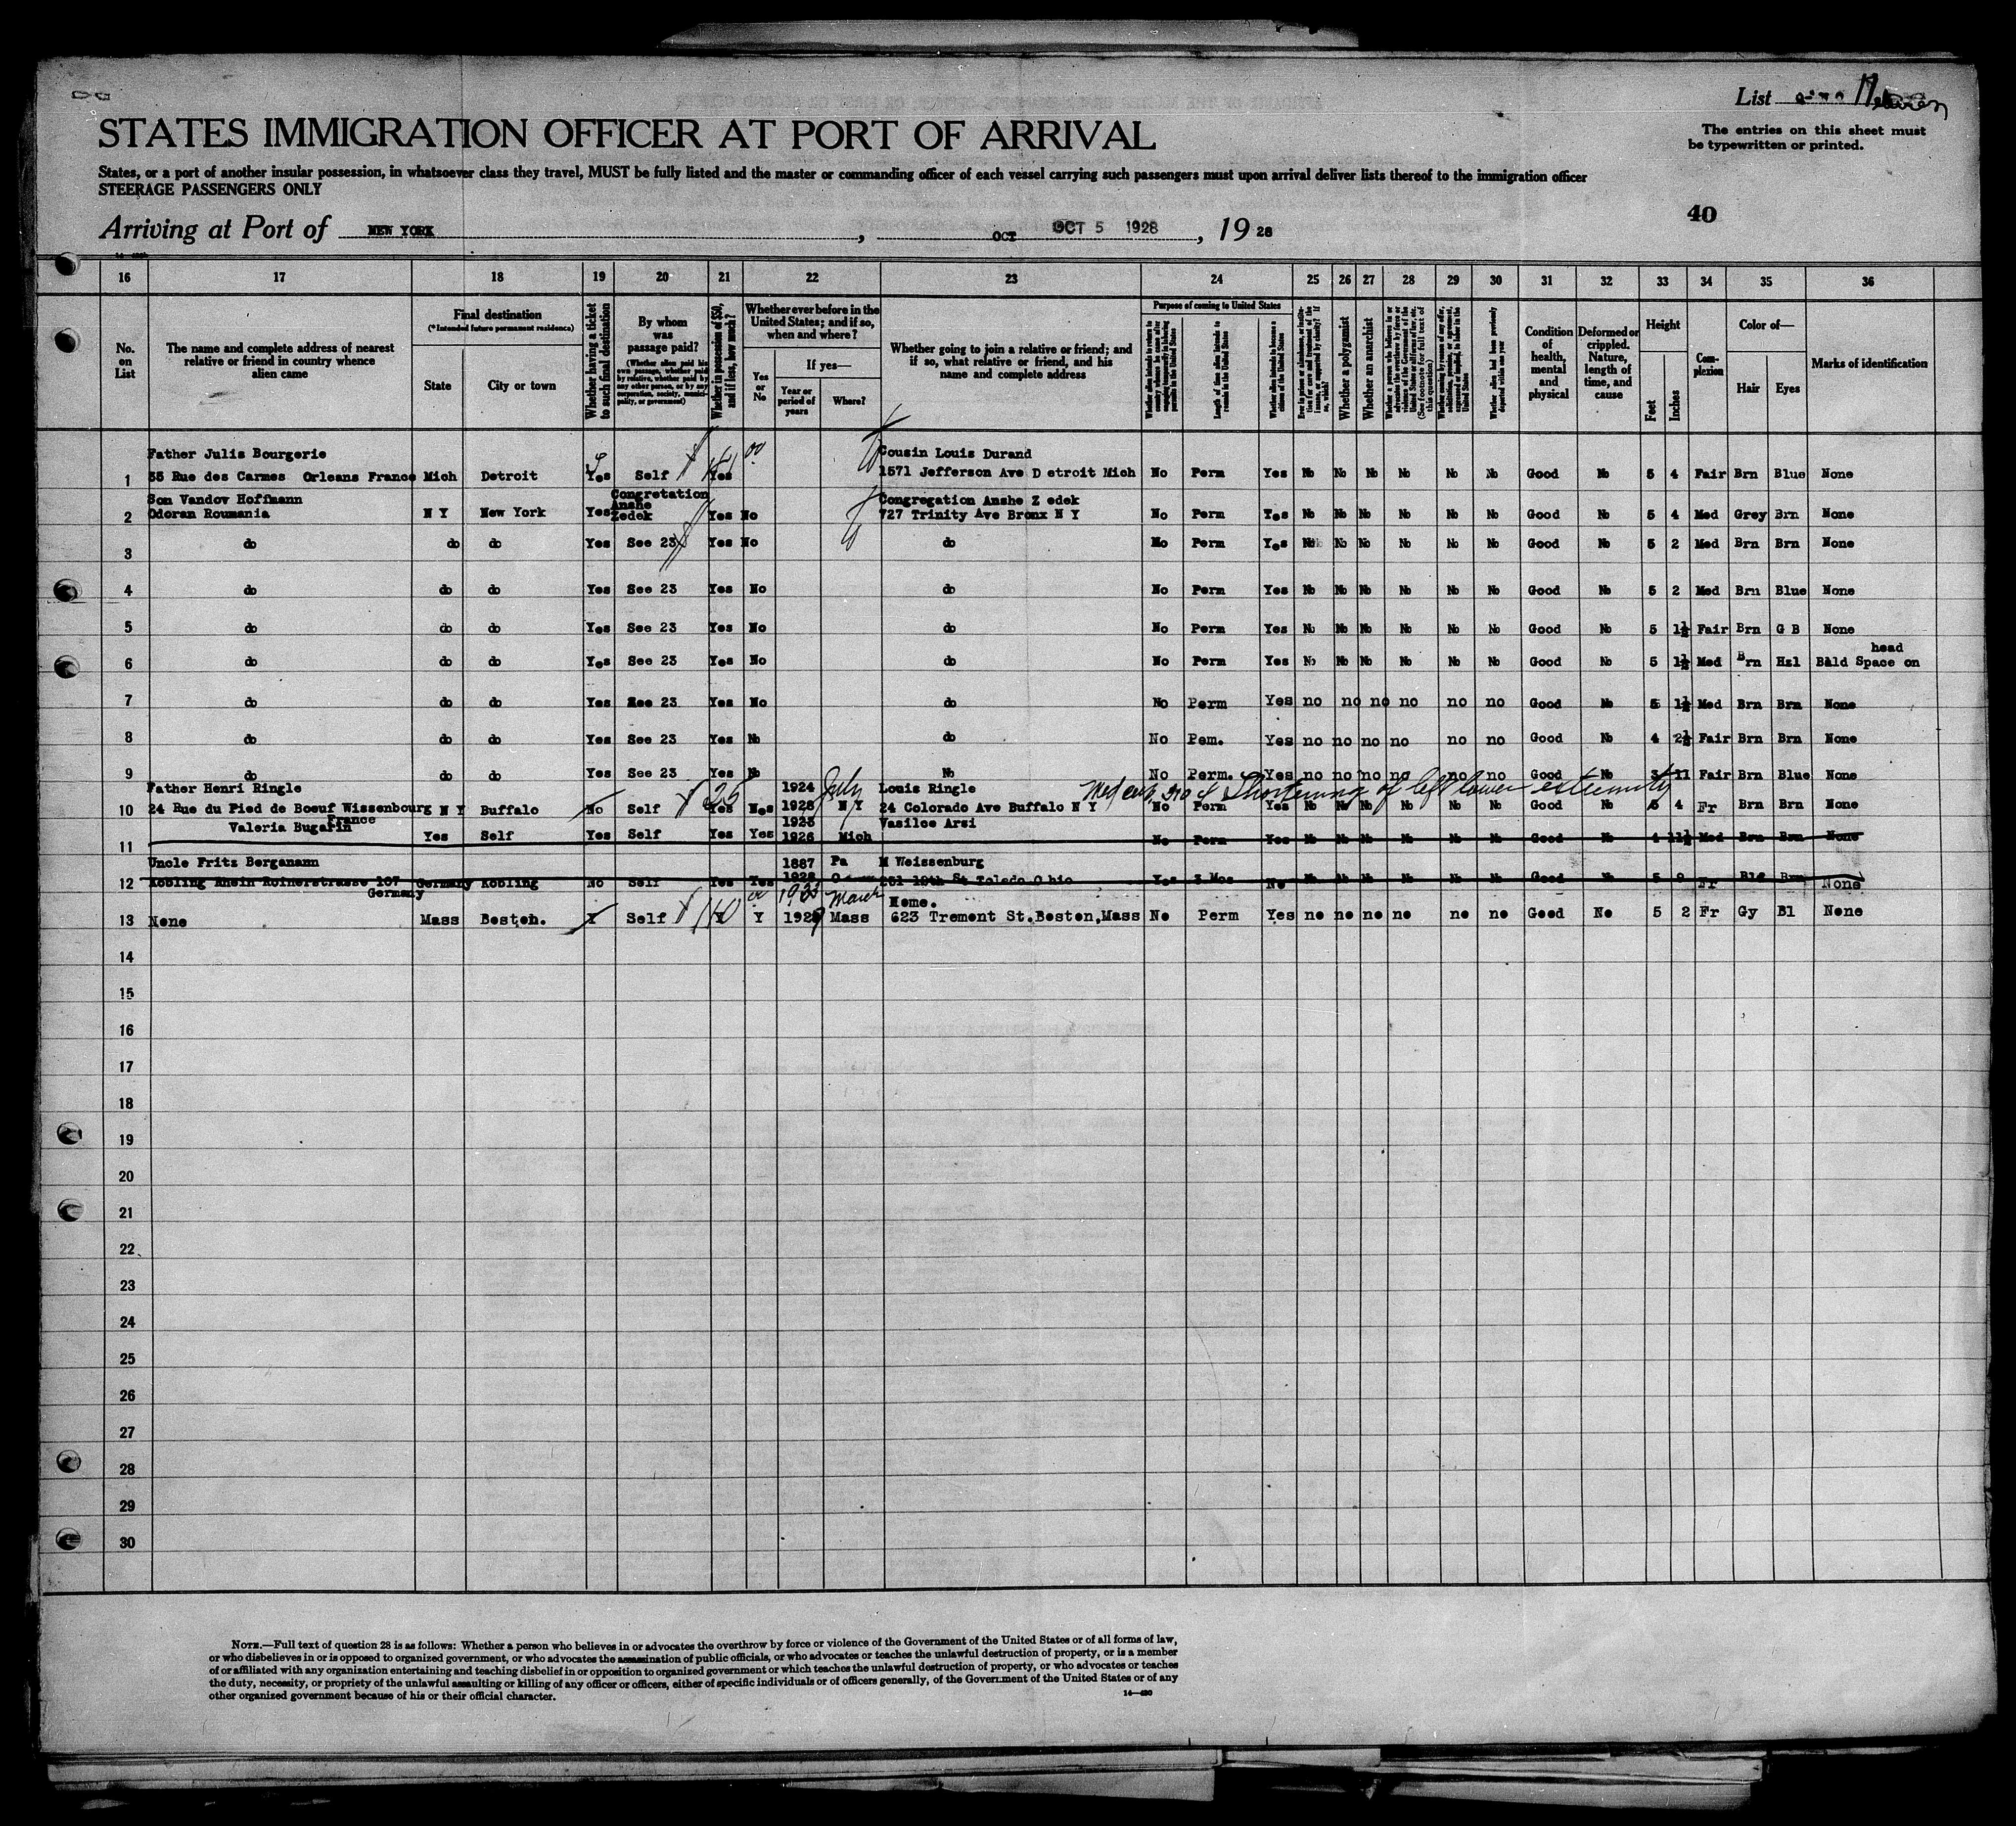 List
The entries on this sheet must
be typewritten or printed.
STATES IMMIGRATION OFFICER AT PORT OF ARRIVAL
States, or a port of another insular possession, in whatsoever class they travel, MUST be fully listed and the master or commanding officer of each vessel carrying such passengers must upon arrival deliver lists thereof to the immigration officer
STEERAGE PASSENGERS ONLY
40
Arriving at Port of NEW YORK, OCT OCT 5 1928, 19 28
16 17 18 19 20 21 22 23 24 25 26 27 28 29 30 31 32 33 34 35 36
No. on List
The name and complete address of nearest relative or friend in country whence alien came
Final destination
(*Intended future permanent residence)
State
City or town
Whether having a ticket to such final destination
By whom was passage paid?
(Whether alien paid his own passage, whether paid by relative, whether paid by any other person, or by any corporation, society, municipality, or government)
Whether in possession of $50, and if less, how much?
Whether ever before in the United States; and if so, when and where?
Yes or No
If yes—
Year or period of years
Where?
Whether going to join a relative or friend; and if so, what relative or friend, and his name and complete address
Purpose of coming to United States
Length of time alien intends to remain in the United States
Whether alien intends to become a citizen of the United States
Whether a polygamist
Whether an anarchist
Whether alien had been previously deported within one year
Condition of health, mental and physical
Deformed or crippled. Nature, length of time, and cause
Height
Feet
Inches
Complexion
Color of—
Hair
Eyes
Marks of identification
Father Julis Bourgerie Cousin Louis Durand
1 35 Rue des Carmes Orleans France Mich Detroit Yes Self Yes 1571 Jefferson Ave Detroit Mich No Perm Yes No No No No No No Good No 5 4 Fair Brn Blue None
Son Vandov Hoffmann Congretation Anshe Zedek Congregation Anshe Z edek
2 Odoran Roumania N Y New York Yes Yes No 727 Trinity Ave Bronx N Y No Perm Yes No No No No No No Good No 5 4 Med Grey Brn None
3 do do do Yes See 23 Yes No do No Perm Yes No No No No No No Good No 5 2 Med Brn Brn None
4 do do do Yes See 23 Yes No do No Perm Yes No No No No No No Good No 5 2 Med Brn Blue None
5 do do do Yes See 23 Yes No do No Perm Yes No No No No No No Good No 5 1½ Fair Brn G B None
head
6 do do do Yes See 23 Yes No do No Perm Yes No No No No No No Good No 5 1½ Med Brn Hzl Bald Space on
7 do do do Yes See 23 Yes No do No Perm Yes no no no no no no Good No 5 1½ Med Brn Brn None
8 do do do Yes See 23 Yes No do No Pem. Yes no no no no no no Good No 4 2½ Fair Brn Brn None
9 do do do Yes See 23 Yes No No No Perm. Yes no no no no no no Good No 3 11 Fair Brn Blue None
Father Henri Ringle 25 1924 July Louis Ringle Shortening of left lower extremity
10 24 Rue du Pied de Boeuf Wissenbourg N Y Buffalo No Self 1928 N Y 24 Colorado Ave Buffalo N Y No Perm Yes No No No No No No Good No 5 4 Fr Brn Brn None
France
Valeria Bugarin 1923 Vasiloe Arsi
11 Yes Self Yes Self Yes Yes 1926 Mich No Perm Yes No No No No No No Good No 4 11½ Med Brn Brn None
Uncle Fritz Bergamann 1887 Pa M Weissenburg
12 Kobling Rhein Roinerstrasse 107 Germany Kobling No Self Yes Yes 1928 St Toledo Ohio Yes 3 Mos No No No No No No No Good No Fr Brn None
Germany
March Home.
13 None Mass Boston. Y Self Y Mass 623 Tremont St. Boston, Mass No Perm Yes no no no no no no Good No 5 2 Fr Gy Bl None
14
15
16
17
18
19
20
21
22
23
24
25
26
27
28
29
30
NOTE.—Full text of question 28 is as follows: Whether a person who believes in or advocates the overthrow by force or violence of the Government of the United States or of all forms of law,
or who disbelieves in or is opposed to organized government, or who advocates the assassination of public officials, or who advocates or teaches the unlawful destruction of property, or is a member
of or affiliated with any organization entertaining and teaching disbelief in or opposition to organized government or which teaches the unlawful destruction of property, or who advocates or teaches
the duty, necessity, or propriety of the unlawful assaulting or killing of any officer or officers, either of specific individuals or of officers generally, of the Government of the United States or of any
other organized government because of his or their official character.